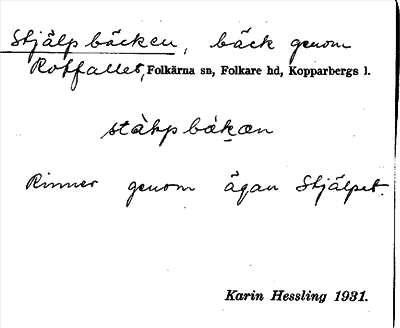 Stjälpbäcken, bäck genom
Rotfallet, Folkärna sn, Folkare hd, Kopparbergs l.
stàlpbäkæn
Rinner genom ägan Stjälpet.
Karin Hessling 1931.